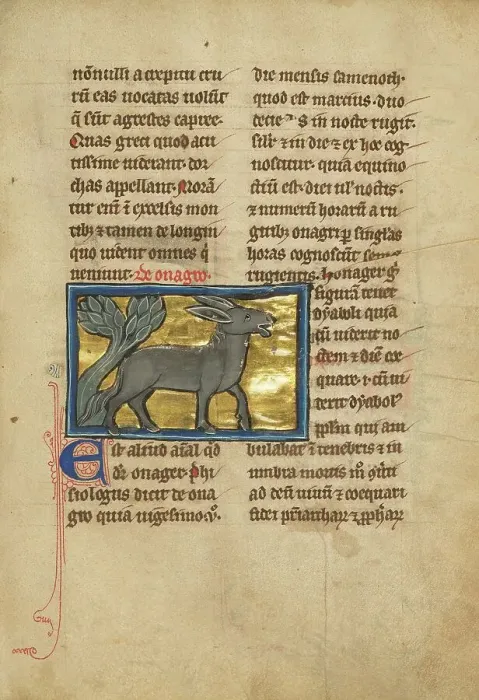 nonulli a crepitu cru
rū eas uocatas uolūt
q̄ sūt agrestes capree.
Quas greci quod acu
tissime uiderant. dor
chas appellant. Morā
tur eni ī excelsis mon
tibꝫ ⁊ tamen de longin
quo uident omnes q̇
ueniunt. De onagro.
Est aliud aīal qd̄
dr̄ onager. Phi
siologus dicit de ona
gro quia uigesimo
die mensis famenoth.
quod est marcius. duo
decies in nocte rugit.
silr̄ ⁊ in die ⁊ ex hoc cog
noscitur. quia equino
ctiū est. diei ul̓ noctis.
⁊ numerū horarū a ru
gitibꝫ onagri ꝑ singlas
horas cognoscūt
rugientis. Honager
figurā tenet
dyaboli quia
cū uiderit no
ctem ⁊ diē co
equare. i. cū ui
derit dyabol᷒
ppl̄m qui am
bulabat ī tenebris ⁊ in
umbra mortis
ad deū uiuū ⁊ coequari
fidei pr̄iarchaꝝ ⁊ ꝓphaꝝ